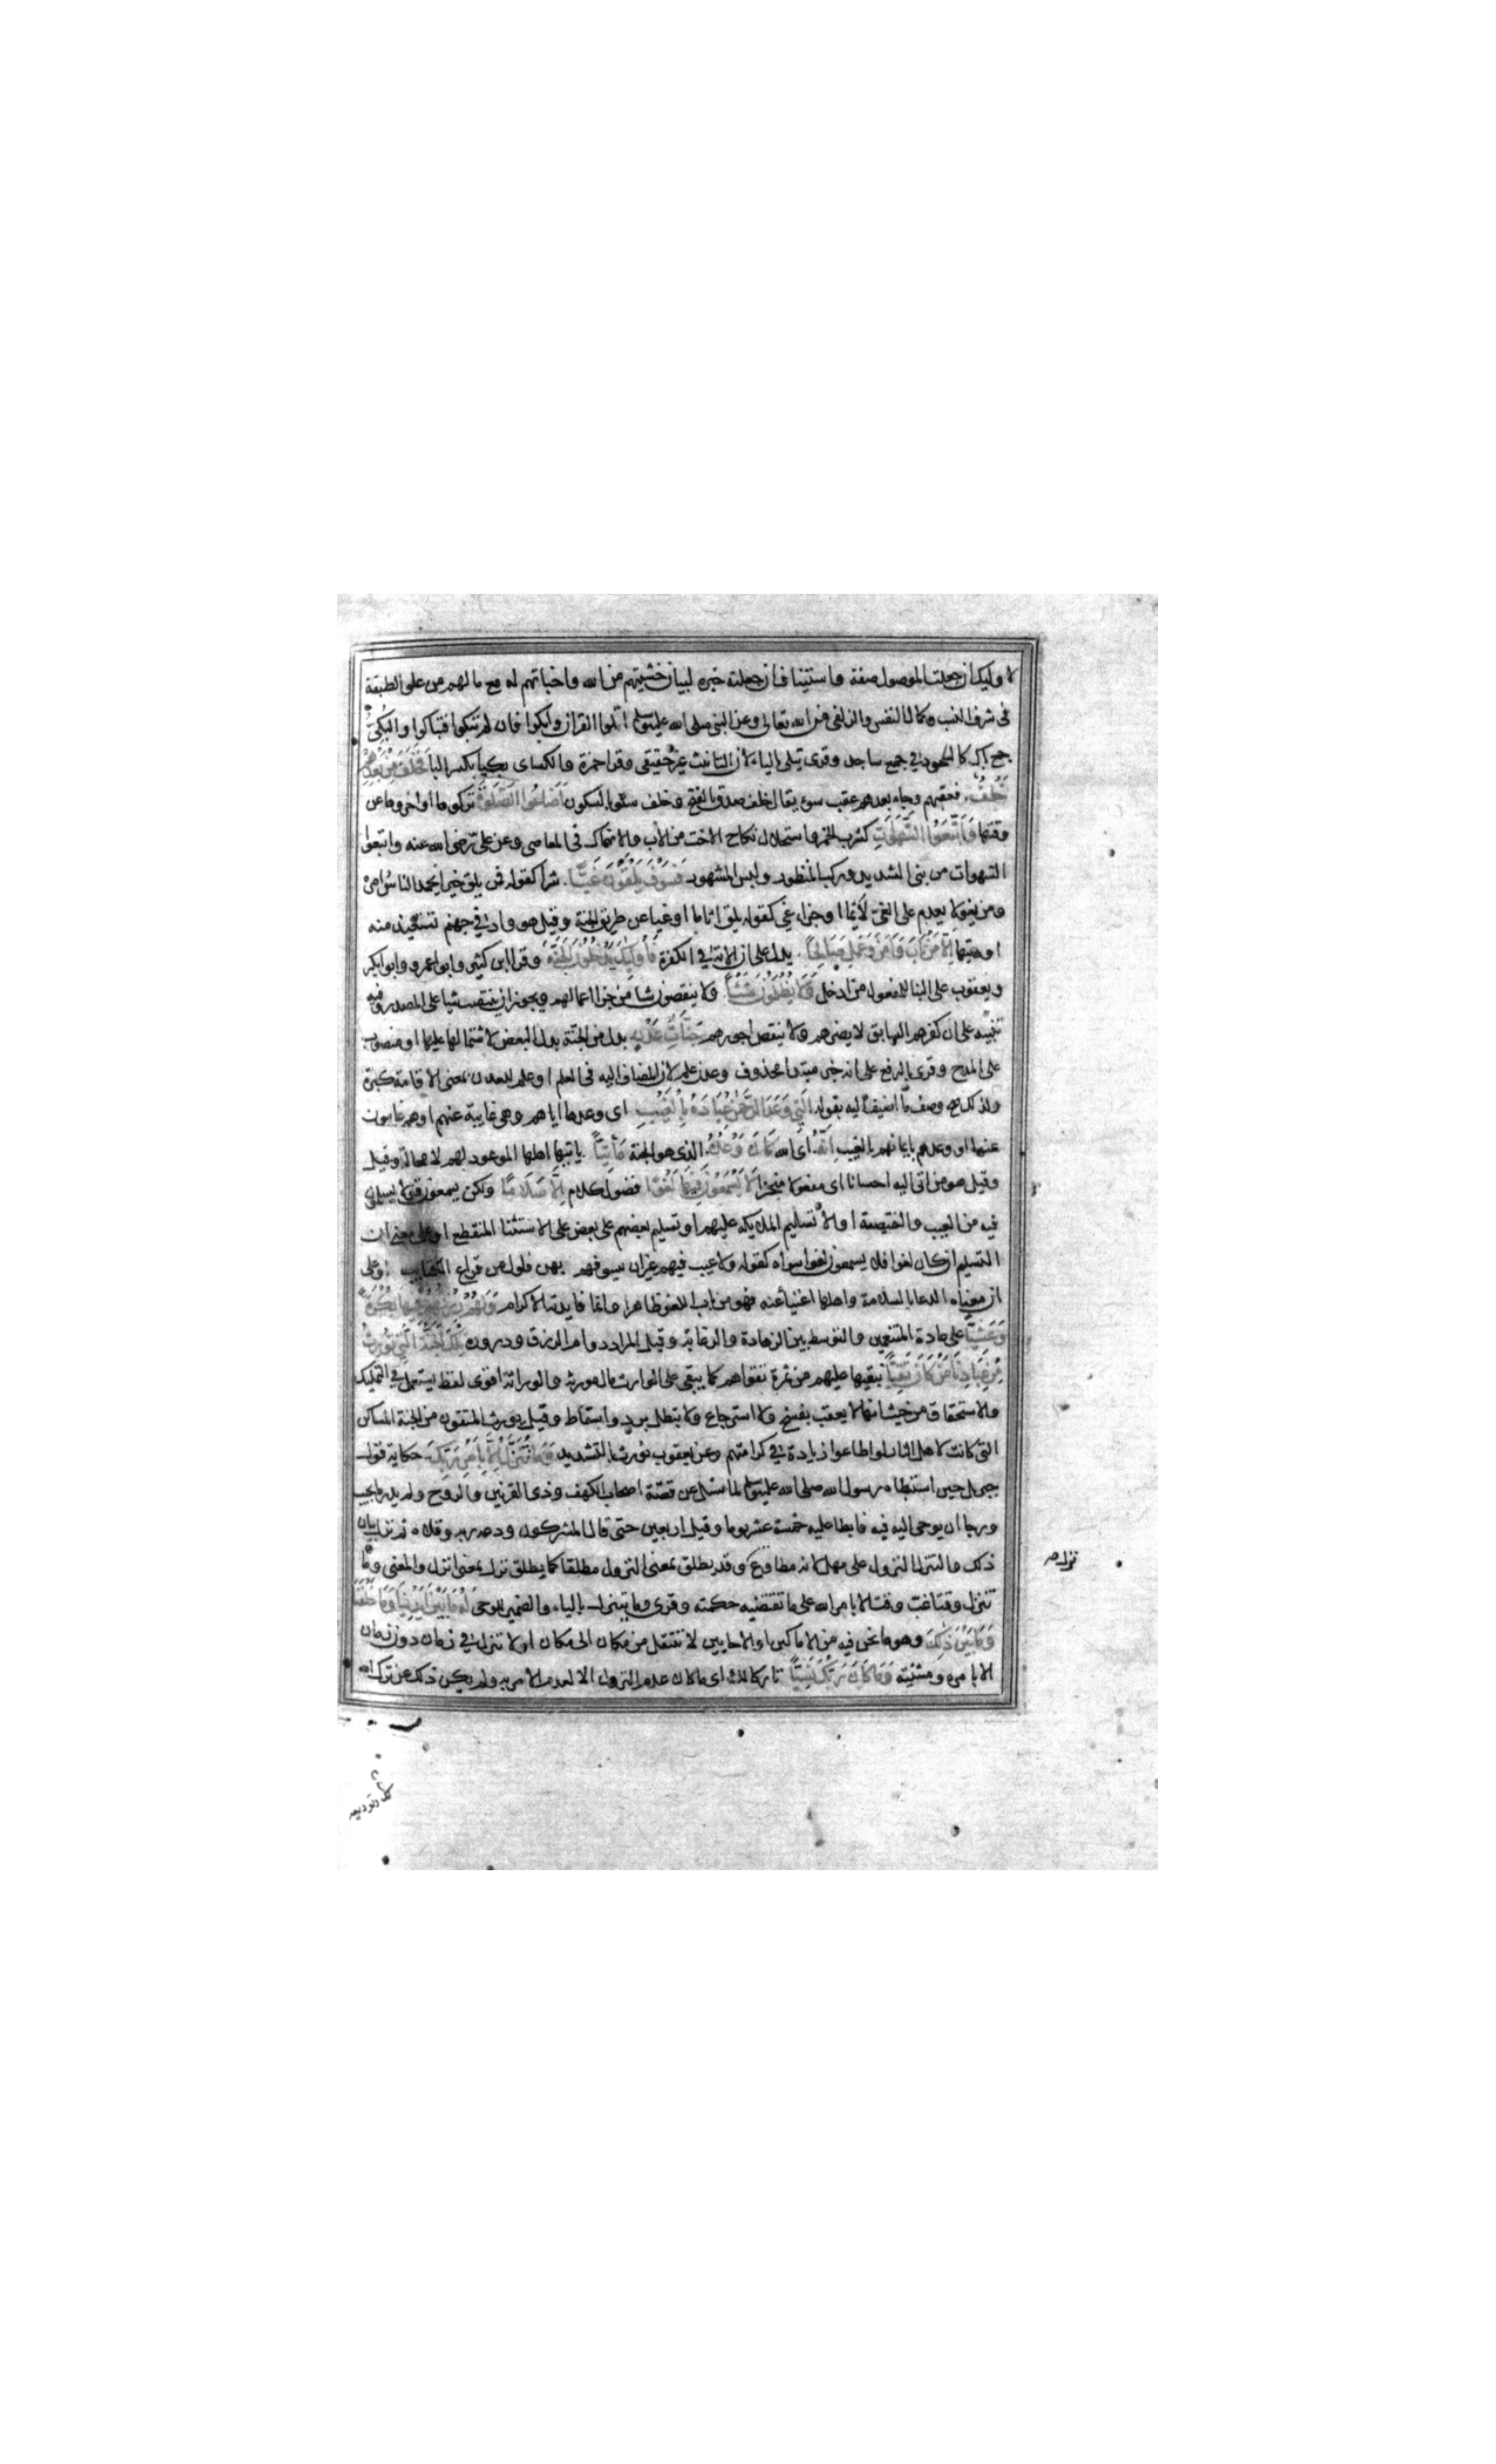 لاوليك ان جعلت الموصول صفة واستيناف ان جعلته خبره لبيان خشيتهم من الله واخباتهم له مع مالهم من علو الطبقة
فى شرف النسب وكمال النفس والزلفى من الله تعالى وعن النبى صلى الله عليه وسلم اتلوا القران وابكوا فان لم تبكوا فتباكوا والبكىّ
جمع باك كالسجود فى جمع ساجد وقرى يتلى بالياء لان التانيث غير حقيقى وقرا حمزة والكساى بكيا بكسر البا فَخَلَفَ مِنْ بَعْدِهِمْ
خَلْفٌ فعقبهم وجاء بعدهم عقب سوء يقال خلف صدق بالفتح وخلف سوء بالسكون اَضَاعُوا الصَّلٰوةَ تركوها او اخروها عن
وقتها وَاتَّبَعُوا الشَّهَوَاتِ كشرب الخمر واستحلال نكاح الاخت من الأب والانهماك فى المعاصى وعن على رضى الله عنه واتبعوا
الشهوات من بنى الشديد وركب المنظور ولبس المشهور فَسَوْفَ يَلْقَوْنَ غَيًّا شرا كقوله فمن يلق خيرا يحمد الناس امره
ومن يغو لا يعدم على الغىّ لائما اوجزاء غى كقوله يلق اثاما او غيا عن طريق الجنة وقيل هو واد فى جهنم تستعيذ منه
اوديتها اِلَّا مَنْ تَابَ وَاٰمَنَ وَعَمِلَ صَالِحًا يدل على ان الاية فى الكفرة فَاُولٰٓئِكَ يَدْخُلُونَ الْجَنَّةَ وقرا ابن كثير وابو عمرو وابو بكر
ويعقوب على البنا للمفعول من ادخل وَلَا يُظْلَمُونَ شَيْئًا ولا ينقصون شيا من جزا اعمالهم ويجوز ان ينتصب شيا على المصدر وفيه
تنبيه على ان كفرهم السابق لا يضرهم ولا ينقص اجورهم جَنَّاتِ عَدْنٍ بدل من الجنة بدل البعض لاشتمالها عليها او منصوب
على المدح وقرى بالرفع على انه خبر مبتدا محذوف وعدن علم لانه المضاف اليه فى العلم او علم للعدن بمعنى الاقامة كبرة
ولذلك صح وصف ما اضيف اليه بقوله الَّتِى وَعَدَ الرَّحْمٰنُ عِبَادَهُ بِالْغَيْبِ اى وعدها اياهم وهى غايبة عنهم او هم غايبون
عنها او وعدهم بايمانهم بالغيب اِنَّهُ اى الله كَانَ وَعْدُهُ الذى هو الجنة مَأْتِيًّا ياتيها اهلها الموعود لهم لا محالة وقيل
وقيل هو من اتى اليه احسانا اى مفعولا منجزا لَا يَسْمَعُونَ فِيهَا لَغْوًا فضول كلام اِلَّا سَلَامًا ولكن يسمعون قولا يسلمون
فيه من العيب والنقيصة او الا تسليم الملايكة عليهم او تسليم بعضهم على بعض على الاستثنا المنقطع او على معنى ان
التسليم ان كان لغوا فلا يسمعون لغوا سواه كقوله ولا عيب فيهم غير ان سيوفهم بهن فلول من قراع الكتايب اوعلى
ان معناه الدعا بالسلامة واهلها اغنياء عنه فهو من باب اللغو ظاهرا وانما فايدته الاكرام وَلَهُمْ رِزْقُهُمْ فِيهَا بُكْرَةً
وَعَشِيًّا على عادة المتنعمين والتوسط بين الزهادة والرغابة وقيل المراد دوام الرزق ودروره تِلْكَ الْجَنَّةُ الَّتِى نُورِثُ
مِنْ عِبَادِنَا مَنْ كَانَ تَقِيًّا نبقيها عليهم من ثمرة تقواهم كما يبقى على الوارث مال مورثه والوراثة اقوى لفظ يستعمل فى التمليك
والاستحقاق من حيث انها لا يعقب بفسخ ولا استرجاع ولا تبطل برد واسقاط وقيل يورث المتقون من الجنة المساكن
التى كانت لاهل النار لو اطاعوا زيادة فى كرامتهم وعن يعقوب نورث بالتشديد وَمَا نَتَنَزَّلُ اِلَّا بِاَمْرِ رَبِّكَ حكاية قول
جبريل حين استبطاه رسول الله صلى الله عليه وسلم لما سئل عن قصة اصحاب الكهف وذى القرنين والروح ولم يدر ما يجيب
ورجا ان يوحى اليه فيه فابطا عليه خمسة عشر يوما وقيل اربعين حتى قال المشركون ودعه ربه وقلاه ثم نزل ببيان
ذلك والتنزل النزول على مهل لانه مطاوع وقد يطلق بمعنى النزول مطلقا كما يطلق نزل بمعنى انزل والمعنى وما
تنزل وقتا غب وقت الا بامر الله على ما تقتضيه حكمته وقرى وما يتنزل بالياء والضمير للوحى لَهُ مَا بَيْنَ اَيْدِينَا وَمَا خَلْفَنَا
وَمَا بَيْنَ ذٰلِكَ وهو ما نحن فيه من الاماكن والاحايين لا ننتقل من مكان الى مكان او لا ننزل فى زمان دون زمان
الا بامره ومشيته وَمَا كَانَ رَبُّكَ نَسِيًّا تاركا لك اى ما كان عدم النزول الا لعدم الامر به ولم يكن ذلك عن ترك الله